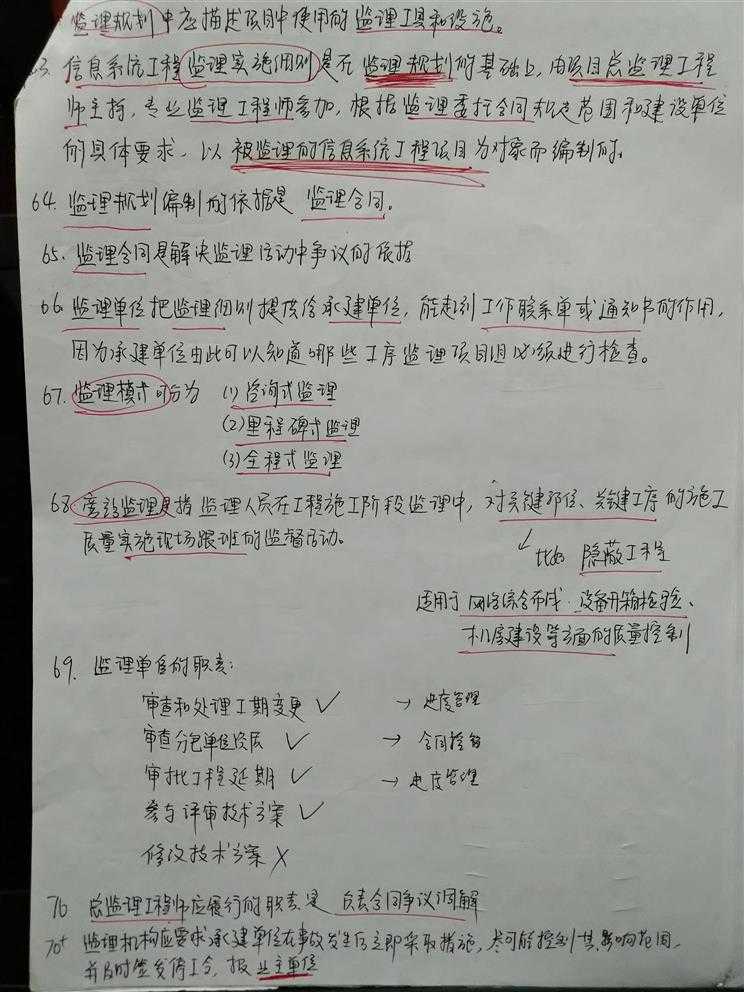 监理规划中应描述项目中使用的监理工具和设施。
63. 信息系统工程监理实施细则是在监理规划的基础上,由项目总监理工程
师主持,专业监理工程师参加,根据监理委托合同规定范围和建设单位
的具体要求,以被监理的信息系统工程项目为对象而编制的。
64. 监理规划编制的依据是 监理合同。
65. 监理合同是解决监理活动中争议的依据
66. 监理单位把监理细则提供给承建单位,能起到工作联系单或通知书的作用,
因为承建单位由此可以知道哪些工序监理项目组必须进行检查。
67. 监理模式可分为 (1) 咨询式监理
(2) 里程碑式监理
(3) 全程式监理
68. 旁站监理是指监理人员在工程施工阶段监理中,对关键部位、关键工序的施工
质量实施现场跟班的监督活动。
↙ 比如 隐蔽工程
适用于网络综合布线、设备开箱检验、
机房建设等方面的质量控制
69. 监理单位的职责:
审查和处理工期变更 ✓ → 进度管理
审查分包单位资质 ✓ → 合同管理
审批工程延期 ✓ → 进度管理
参与评审技术方案 ✓
修改技术方案 ×
70 总监理工程师应履行的职责是 负责合同争议调解
70+ 监理机构应要求承建单位在事故发生后立即采取措施,尽可能控制其影响范围,
并及时签发停工令,报业主单位